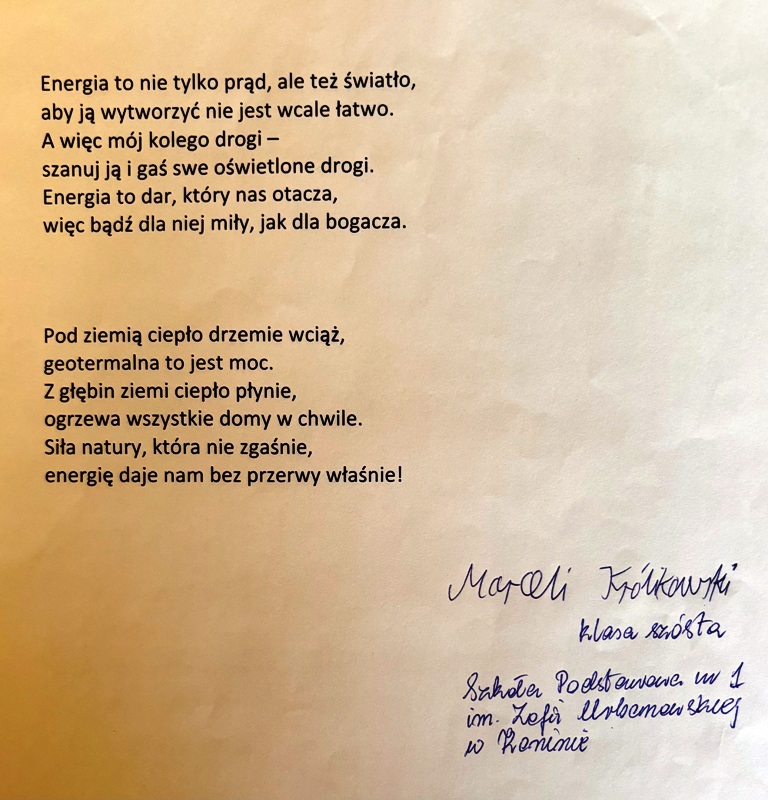 Energia to nie tylko prąd, ale też światło,
aby ją wytworzyć nie jest wcale łatwo.
A więc mój kolego drogi –
szanuj ją i gaś swe oświetlone drogi.
Energia to dar, który nas otacza,
więc bądź dla niej miły, jak dla bogacza.
Pod ziemią ciepło drzemie wciąż,
geotermalna to jest moc.
Z głębin ziemi ciepło płynie,
ogrzewa wszystkie domy w chwile.
Siła natury, która nie zgaśnie,
energię daje nam bez przerwy właśnie!
Marceli Królikowski
klasa szósta
Szkoła Podstawowa nr 1
im. Zofii Urbanowskiej
w Koninie